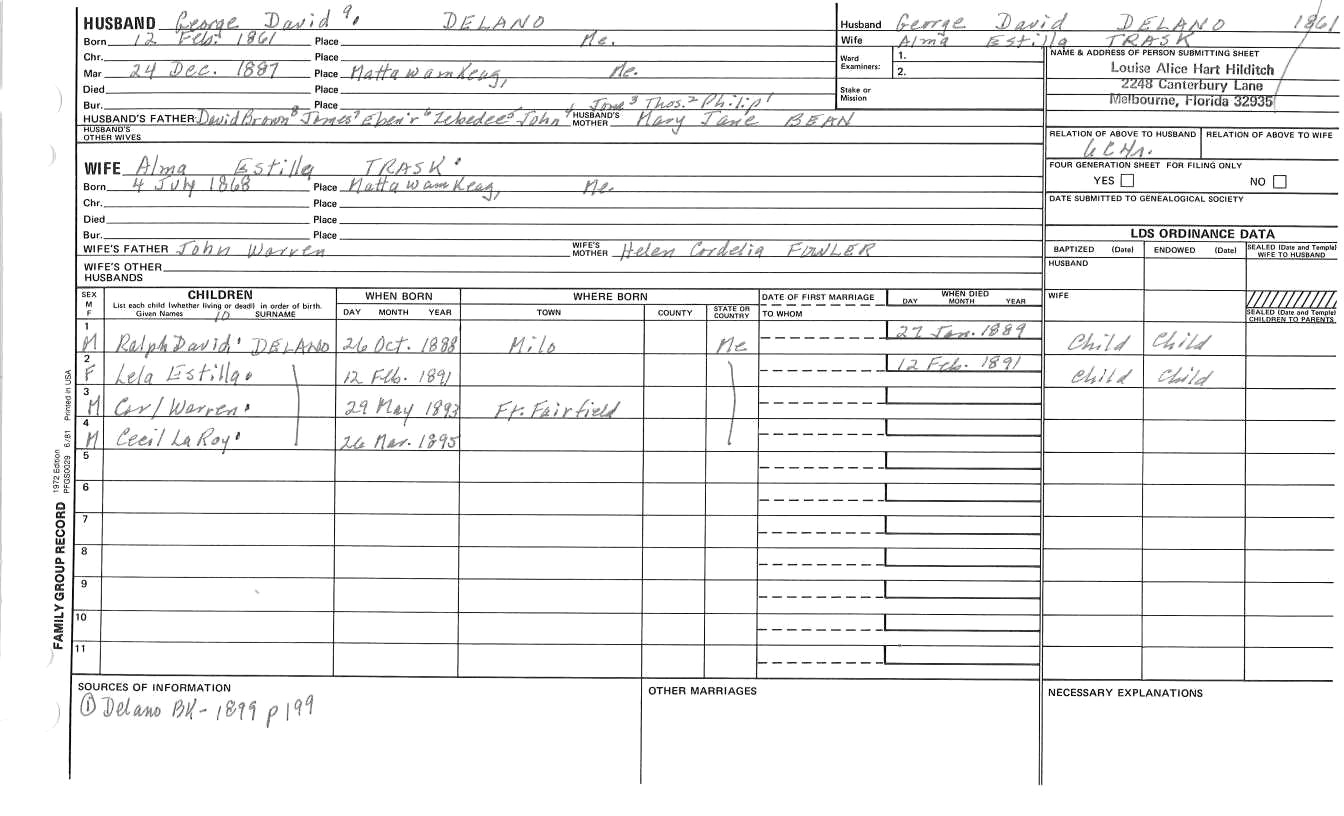 HUSBAND George David 9. DELANO
Born 12 Feb. 1861 Place Me.
Chr. Place
Mar 24 Dec. 1887 Place Mattawamkeag, Me.
Died Place
Bur. Place
Jona 3 Thos. 2 Philip 1
HUSBAND'S FATHER David Brown 8 James 7 Eben'r 6 Zebedee 5 John 4 HUSBAND'S MOTHER Mary Jane BEAN
HUSBAND'S OTHER WIVES
WIFE Alma Estilla TRASK
Born 4 July 1868 Place Mattawamkeag, Me.
Chr. Place
Died Place
Bur. Place
WIFE'S FATHER John Warren WIFE'S MOTHER Helen Cordelia FOWLER
WIFE'S OTHER HUSBANDS
Husband George David DELANO 1861
Wife Alma Estilla TRASK
Ward Examiners: 1.
2.
Stake or Mission
NAME & ADDRESS OF PERSON SUBMITTING SHEET
Louise Alice Hart Hilditch
2248 Canterbury Lane
Melbourne, Florida 32935
RELATION OF ABOVE TO HUSBAND RELATION OF ABOVE TO WIFE
FOUR GENERATION SHEET FOR FILING ONLY
YES NO
DATE SUBMITTED TO GENEALOGICAL SOCIETY
LDS ORDINANCE DATA
BAPTIZED (Date) ENDOWED (Date) SEALED (Date and Temple) WIFE TO HUSBAND
HUSBAND
WIFE
SEALED (Date and Temple) CHILDREN TO PARENTS
SEX M F
CHILDREN
List each child (whether living or dead) in order of birth.
Given Names 10 SURNAME
WHEN BORN
DAY MONTH YEAR
WHERE BORN
TOWN COUNTY STATE OR COUNTRY
DATE OF FIRST MARRIAGE
TO WHOM
WHEN DIED
DAY MONTH YEAR
1 M Ralph David DELANO 26 Oct. 1888 Milo Me 27 Jan. 1889 Child Child
2 F Lela Estilla 12 Feb. 1891 12 Feb. 1891 Child Child
3 M Carl Warren 29 May 1893 Ft. Fairfield
4 M Cecil LaRoy 26 Mar. 1895
5
6
7
8
9
10
11
SOURCES OF INFORMATION
① Delano BK- 1899 p 199
OTHER MARRIAGES
NECESSARY EXPLANATIONS
FAMILY GROUP RECORD 1972 Edition PFGS0029 6/81 Printed in USA